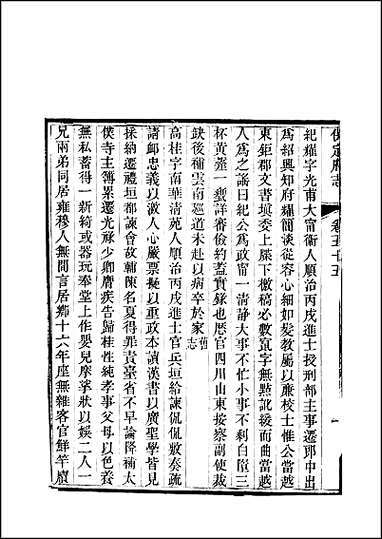 保定府志 卷五十五 一
紀耀字光南大甯衛人順治丙戌進士授刑部主事遷郎中出
為紹興知府耀簡談從容心細如髮教屬以廉校士惟公當越
東鉅郡文書填委上牒下檄稿必數竄字無點訛緩而曲當越
人為之謠曰紀公為政甯一清靜大事不忙小事不剩白簡三
杯黃虀一甕詳審儉約蓋實錄也歷官四川山東按察副使裁
缺後補雲南巡道未赴以病卒於家舊志
高桂字南華清苑人順治丙戌進士官兵垣給諫侃侃數奏疏
請卹忠義以激人心嚴票擬以重政本讀漢書以廣聖學皆見
採納遷禮垣都諫會故輔陳名夏得罪責臺省不早論降補太
僕寺主簿累遷光祿少卿膺疾告歸桂性純孝事父母以色養
無私蓄得一新綺或器玩奉堂上作嬰兒摩挲狀以娛二人一
兄兩弟同居雍穆人無閒言居鄉十六年座無雜客官鮮竿牘